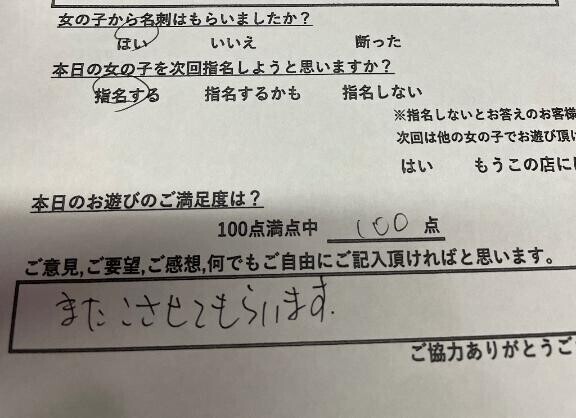 女の子から名刺はもらいましたか?
はい いいえ 断った
本日の女の子を次回指名しようと思いますか?
指名する 指名するかも 指名しない
※指名しないとお答えのお客様
次回は他の女の子でお遊び頂け
はい もうこの店に
本日のお遊びのご満足度は?
100点満点中 100 点
ご意見,ご要望,ご感想,何でもご自由にご記入頂ければと思います。
またこさせてもらいます.
ご協力ありがとうご